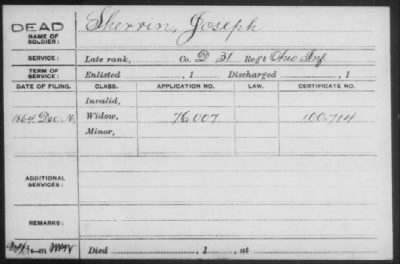 DEAD Sherrin, Joseph
NAME OF SOLDIER:
SERVICE: Late rank, Co. D 31 Reg't Ohio Inf
TERM OF SERVICE: Enlisted , 1 Discharged , 1
DATE OF FILING. CLASS. APPLICATION NO. LAW. CERTIFICATE NO.
Invalid,
1864, Dec. 16, Widow, 76,007 100,714
Minor,
ADDITIONAL SERVICES:
REMARKS:
Died , 1 , at